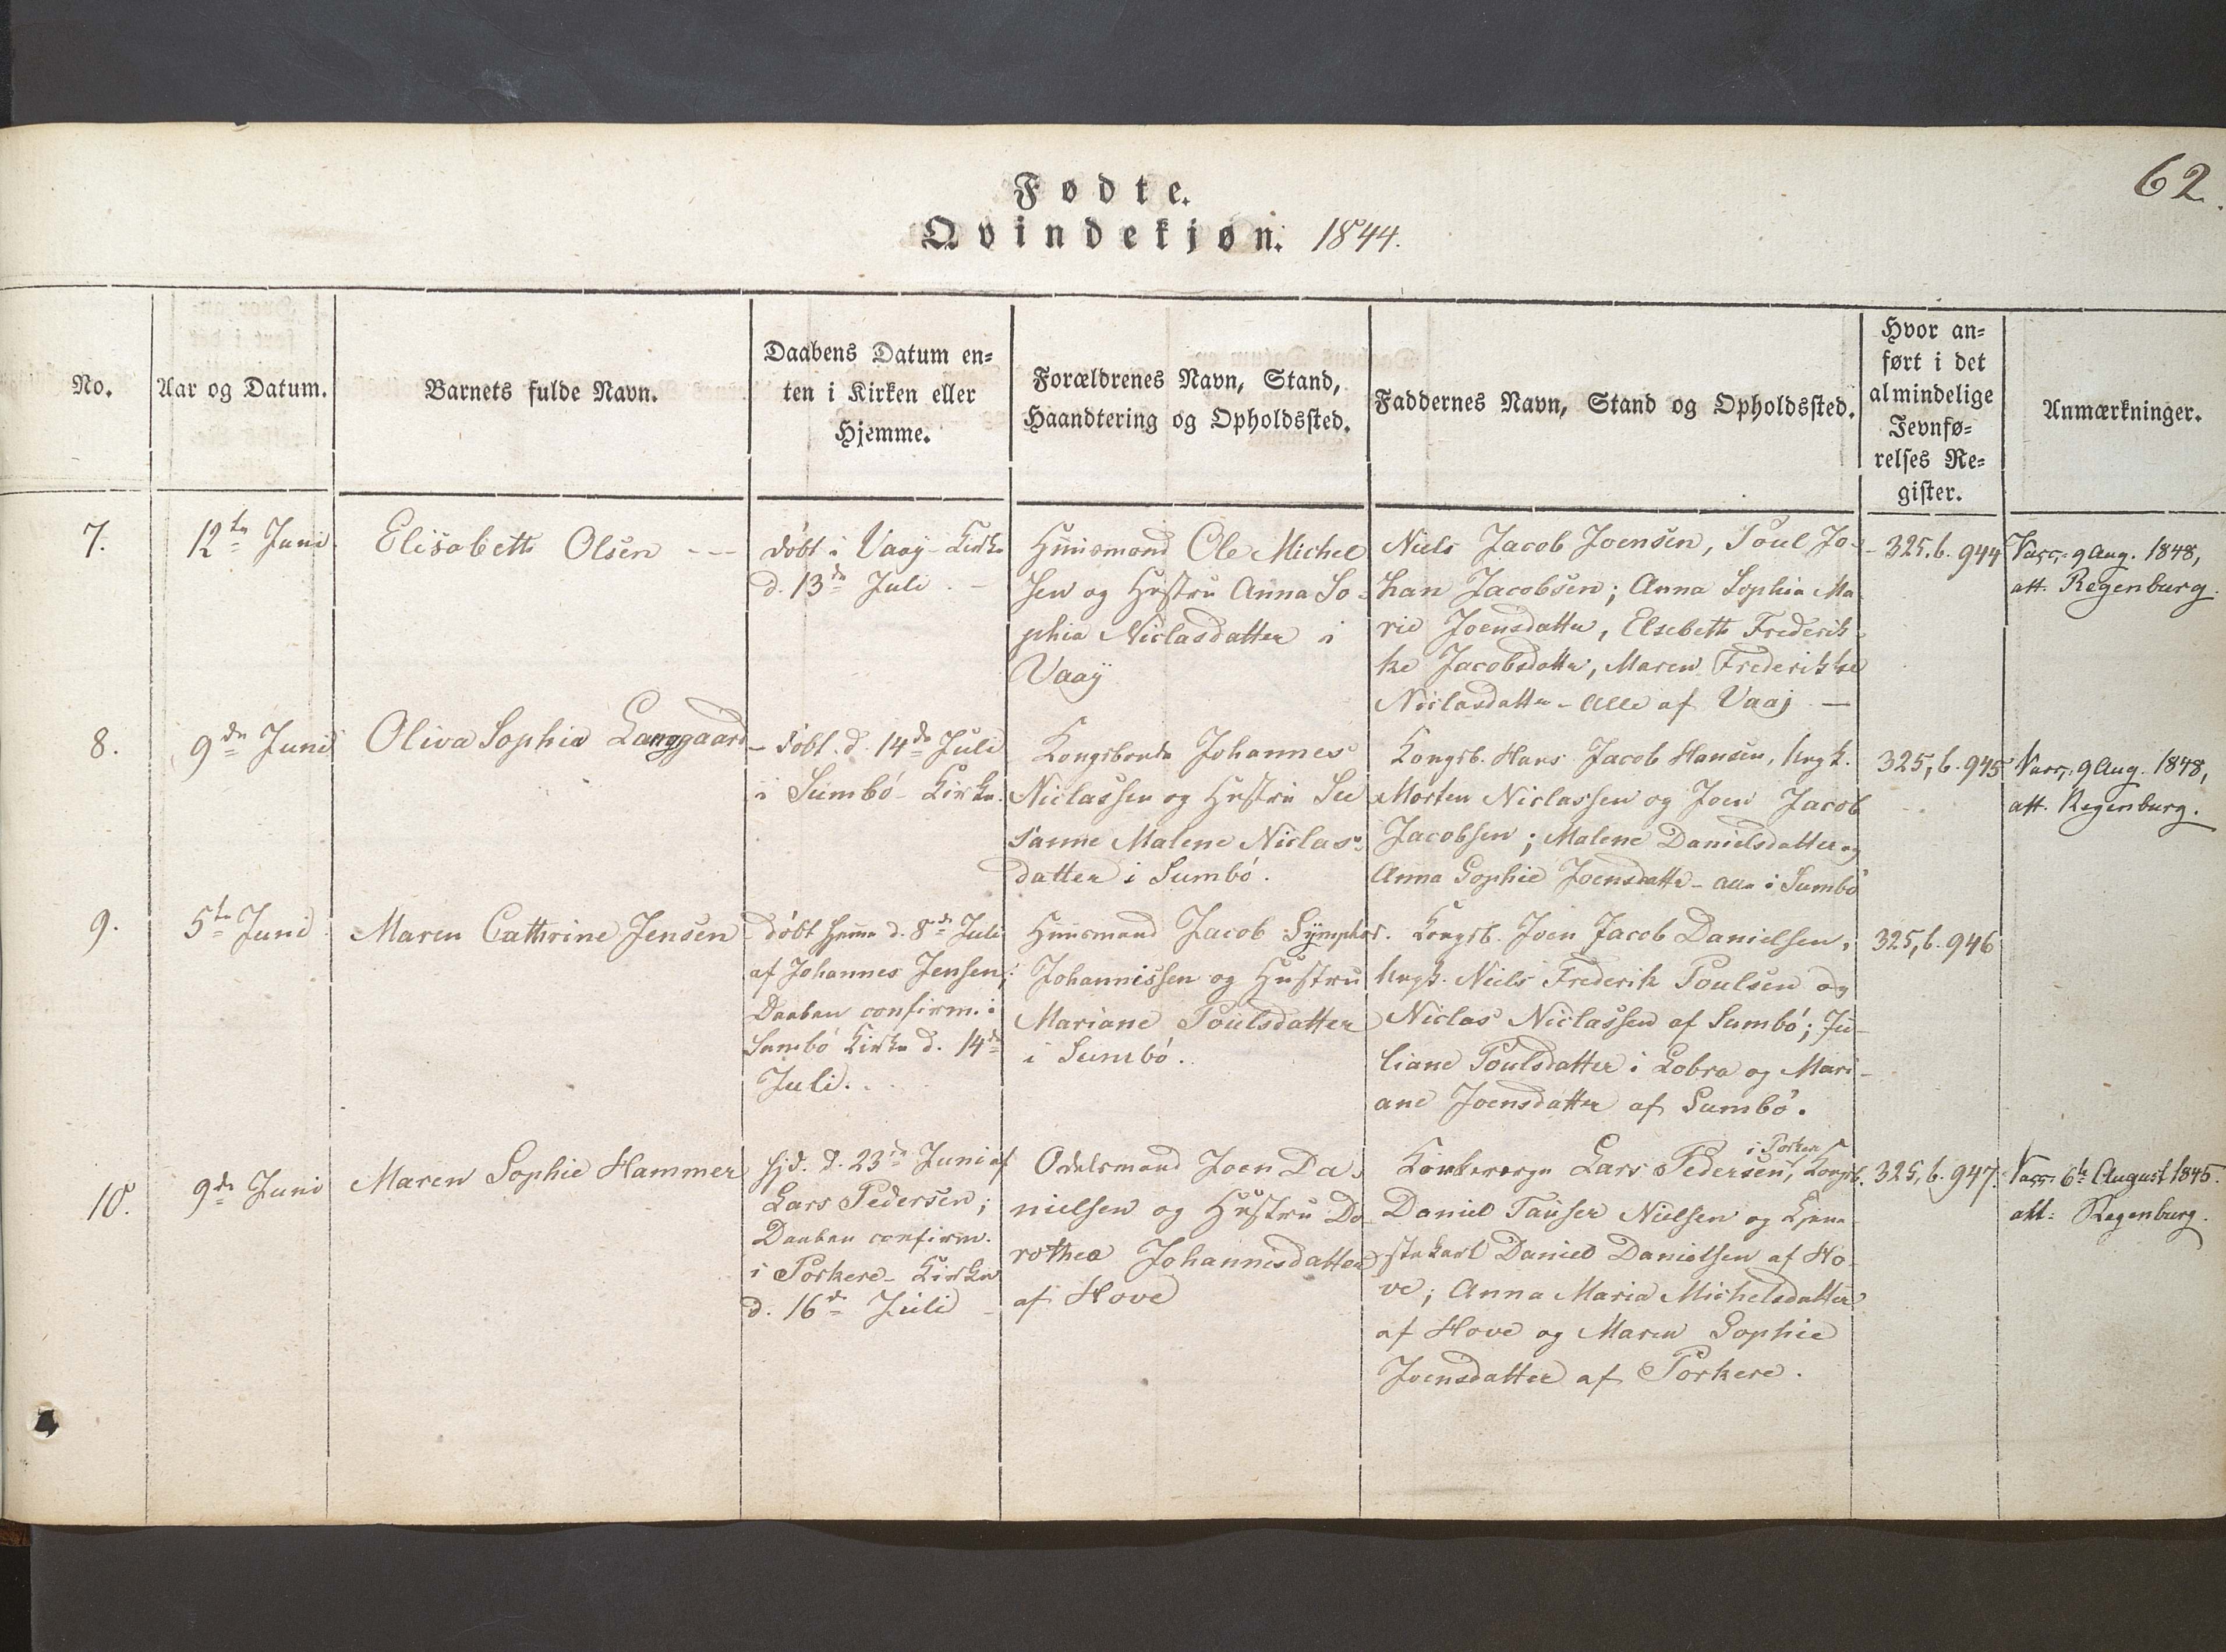 62.
Fødte.
Qvindekjøn. 1844.
No.
Aar og Datum.
Barnets fulde Navn.
Daabens Datum en=
ten i Kirken eller
Hjemme.
Forældrenes Navn, Stand,
Haandtering og Opholdssted.
Faddernes Navn, Stand og Opholdssted.
Hvor an=
ført i det
almindelige
Jevnfø=
relses Re=
gister.
Anmærkninger.
7.
12te Juni
Elisabeth Olsen ---
døbt i Vaay-Kirke
d. 13de Juli. -
Huusmand Ole Michel
sen og Hustru Anna So-
phia Niclasdatter i
Vaaÿ
Niels Jacob Joensen, Poul Jo-
han Jacobsen; Anna Sophia Ma
rie Joensdatter, Elsebeth Frederik
ke Jacobsdatter, Maren Frederikke
Niclasdatter - Alle af Vaaj -
325. b. 944
Vacc. 9 Aug. 1848,
att. Regenburg.
8.
9de Juni
Oliva Sophia Langgaard
- døbt. d. 14de Juli
i Sumbö-Kirke.
Kongsbonde Johannes
Niclassen og Hustru Su
sanne Malene Niclas-
datter i Sumbö.
Kongsb. Hans Jacob Hansen, Ungk.
Morten Niclassen og Joen Jacob
Jacobsen; Malene Danielsdatter og
Anna Sophie Joensdatter - alle i Sumbö
325, b. 945
Vacc. 9 Aug. 1848,
att. Regenburg.
9.
5te Juni
Maren Cathrine Jensen
døbt hjemme d. 8de Juli
af Johannes Jensen;
Daaben confirm. i
Sumbö Kirke d. 14de
Juli.
Huusmand Jacob Sÿmphor.
Johannissen og Hustru
Mariane Poulsdatter
i Sumbö.
Kongsb. Joen Jacob Danielsen,
Ungk. Niels Frederik Poulsen og
Niclas Niclassen af Sumbö; Ju-
liane Poulsdatter i Lobra og Mari-
ane Joensdatter af Sumbö.
325, b. 946
10.
9de Juni
Maren Sophie Hammer
hjd. d. 23de Juni af
Lars Pedersen;
Daaben confirm.
i Porkere-Kirke
d. 16de Juli -
Odelsmand Joen Da-
nielsen og Hustru Do
rothea Johannisdatter
af Hove
i Porkere
Lars Pedersen, Kongsb.
Daniel Tauser Nielsen og Tjene-
stekarl Daniel Danielsen af Ho-
ve; Anna Maria Michelsdatter
af Hove og Maren Sophie
Joensdatter af Porkere.
325, b. 947.
Vacc. 6te August 1845.
att. Regenburg.